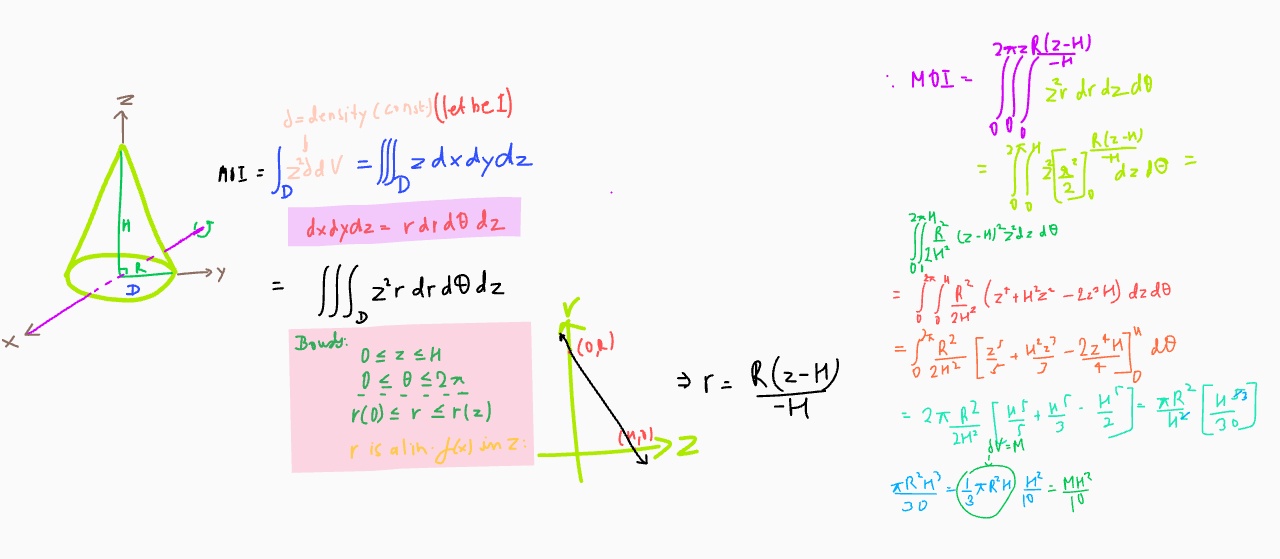 Z
H
R
D
Y
X
d = density (const) (let be 1)
MOI = ∫_D z²ddV = ∭_D z dxdydz
dxdydz = r dr dθ dz
= ∭_D z²r dr dθ dz
Bounds:
0 ≤ z ≤ H
0 ≤ θ ≤ 2π
r(0) ≤ r ≤ r(z)
r is a lin. f(x) in z:
r
(0,R)
(H,0)
Z
⇒ r = R(z-H)/-H
∵ MOI = ∫_0^2π ∫_0^z ∫_0^{R(z-H)/-H} z²r dr dz dθ
= ∫_0^2π ∫_0^H z² [r²/2]_0^{R(z-H)/-H} dz dθ =
∫_0^2π ∫_0^H R²/2H² (z-H)² z² dz dθ
= ∫_0^2π ∫_0^H R²/2H² (z⁴ + H²z² - 2z³H) dz dθ
= ∫_0^2π R²/2H² [z⁵/5 + H²z³/3 - 2z⁴H/4]_0^H dθ
= 2π R²/2H² [H⁵/5 + H⁵/3 - H⁵/2] = πR²/H² [H⁵/30]
dV = M
πR²H³/30 = (1/3 πR²H) H²/10 = MH²/10